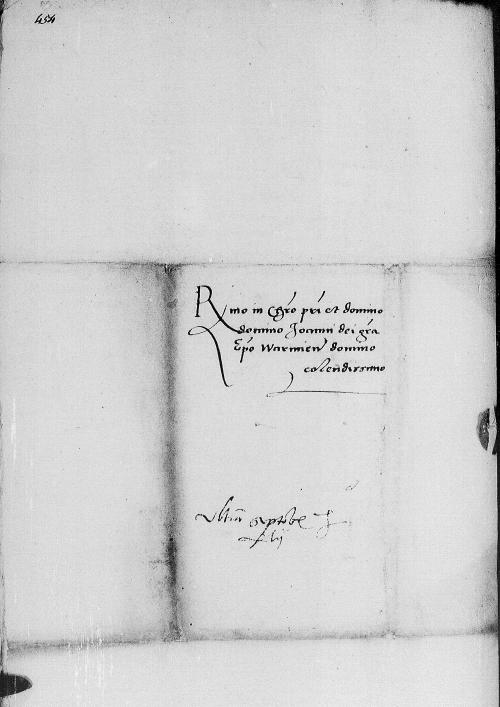 454
Rmo in Chro pri et domino
domino Joanni dei gra
Epo Warmien domino
colendissimo
Septēb